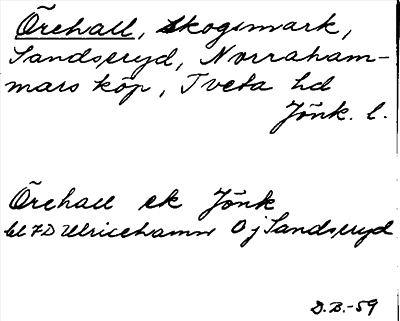 Örehall, Skogsmark,
Sandseryd, Norraham-
mars köp, Tveta hd
Jönk. l.
Örehall ek Jönk
bl 7D Ulricehamn Ö j Sandseryd
D.B.-59